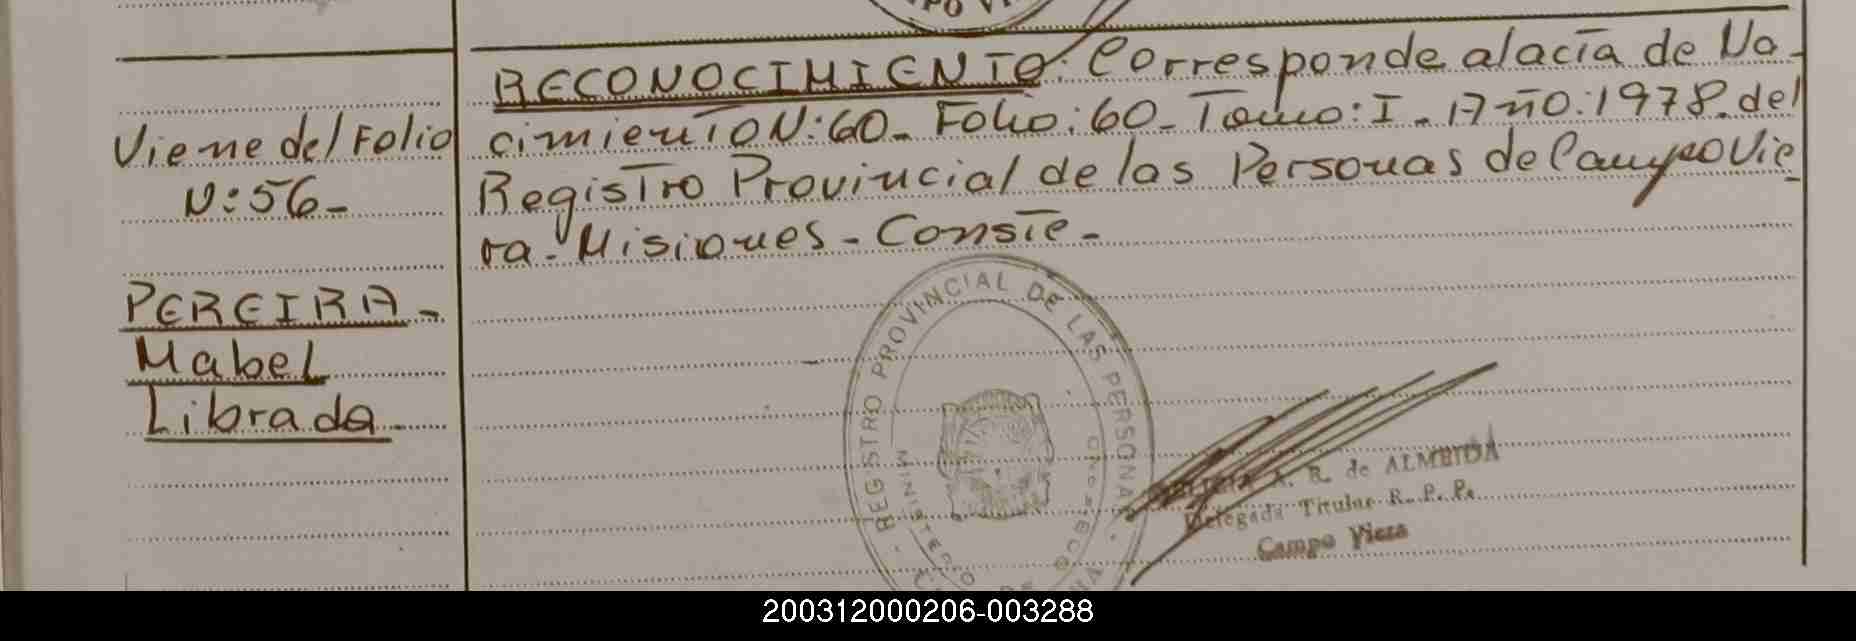 Viene del Folio
N:56-
PEREIRA-
Mabel
Librada-
RECONOCIMIENTO: Corresponde al acta de Na-
cimiento N:60- Folio:60- Tomo:I- Año:1978. del
Registro Provincial de las Personas de Campo Vie-
ra- Misiones- Conste-
REGISTRO PROVINCIAL DE LAS PERSONAS
MINISTERIO DE GOBIERNO
A. R. de ALMEIDA
Delegada Titular R. P. P.
Campo Viera
200312000206-003288